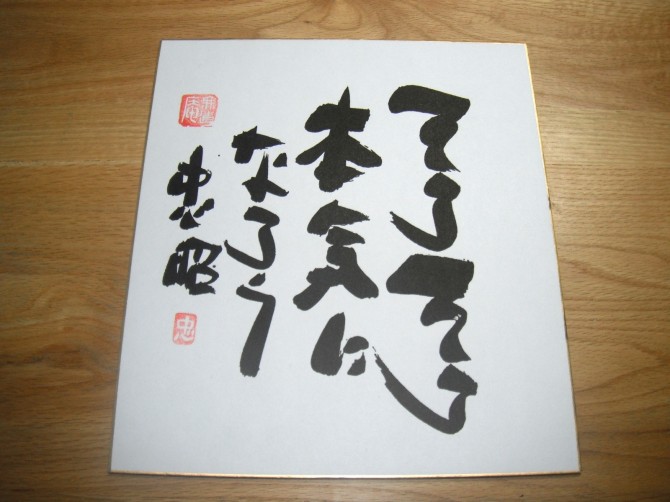 そろそろ
本気に
なろう
忠昭
忠